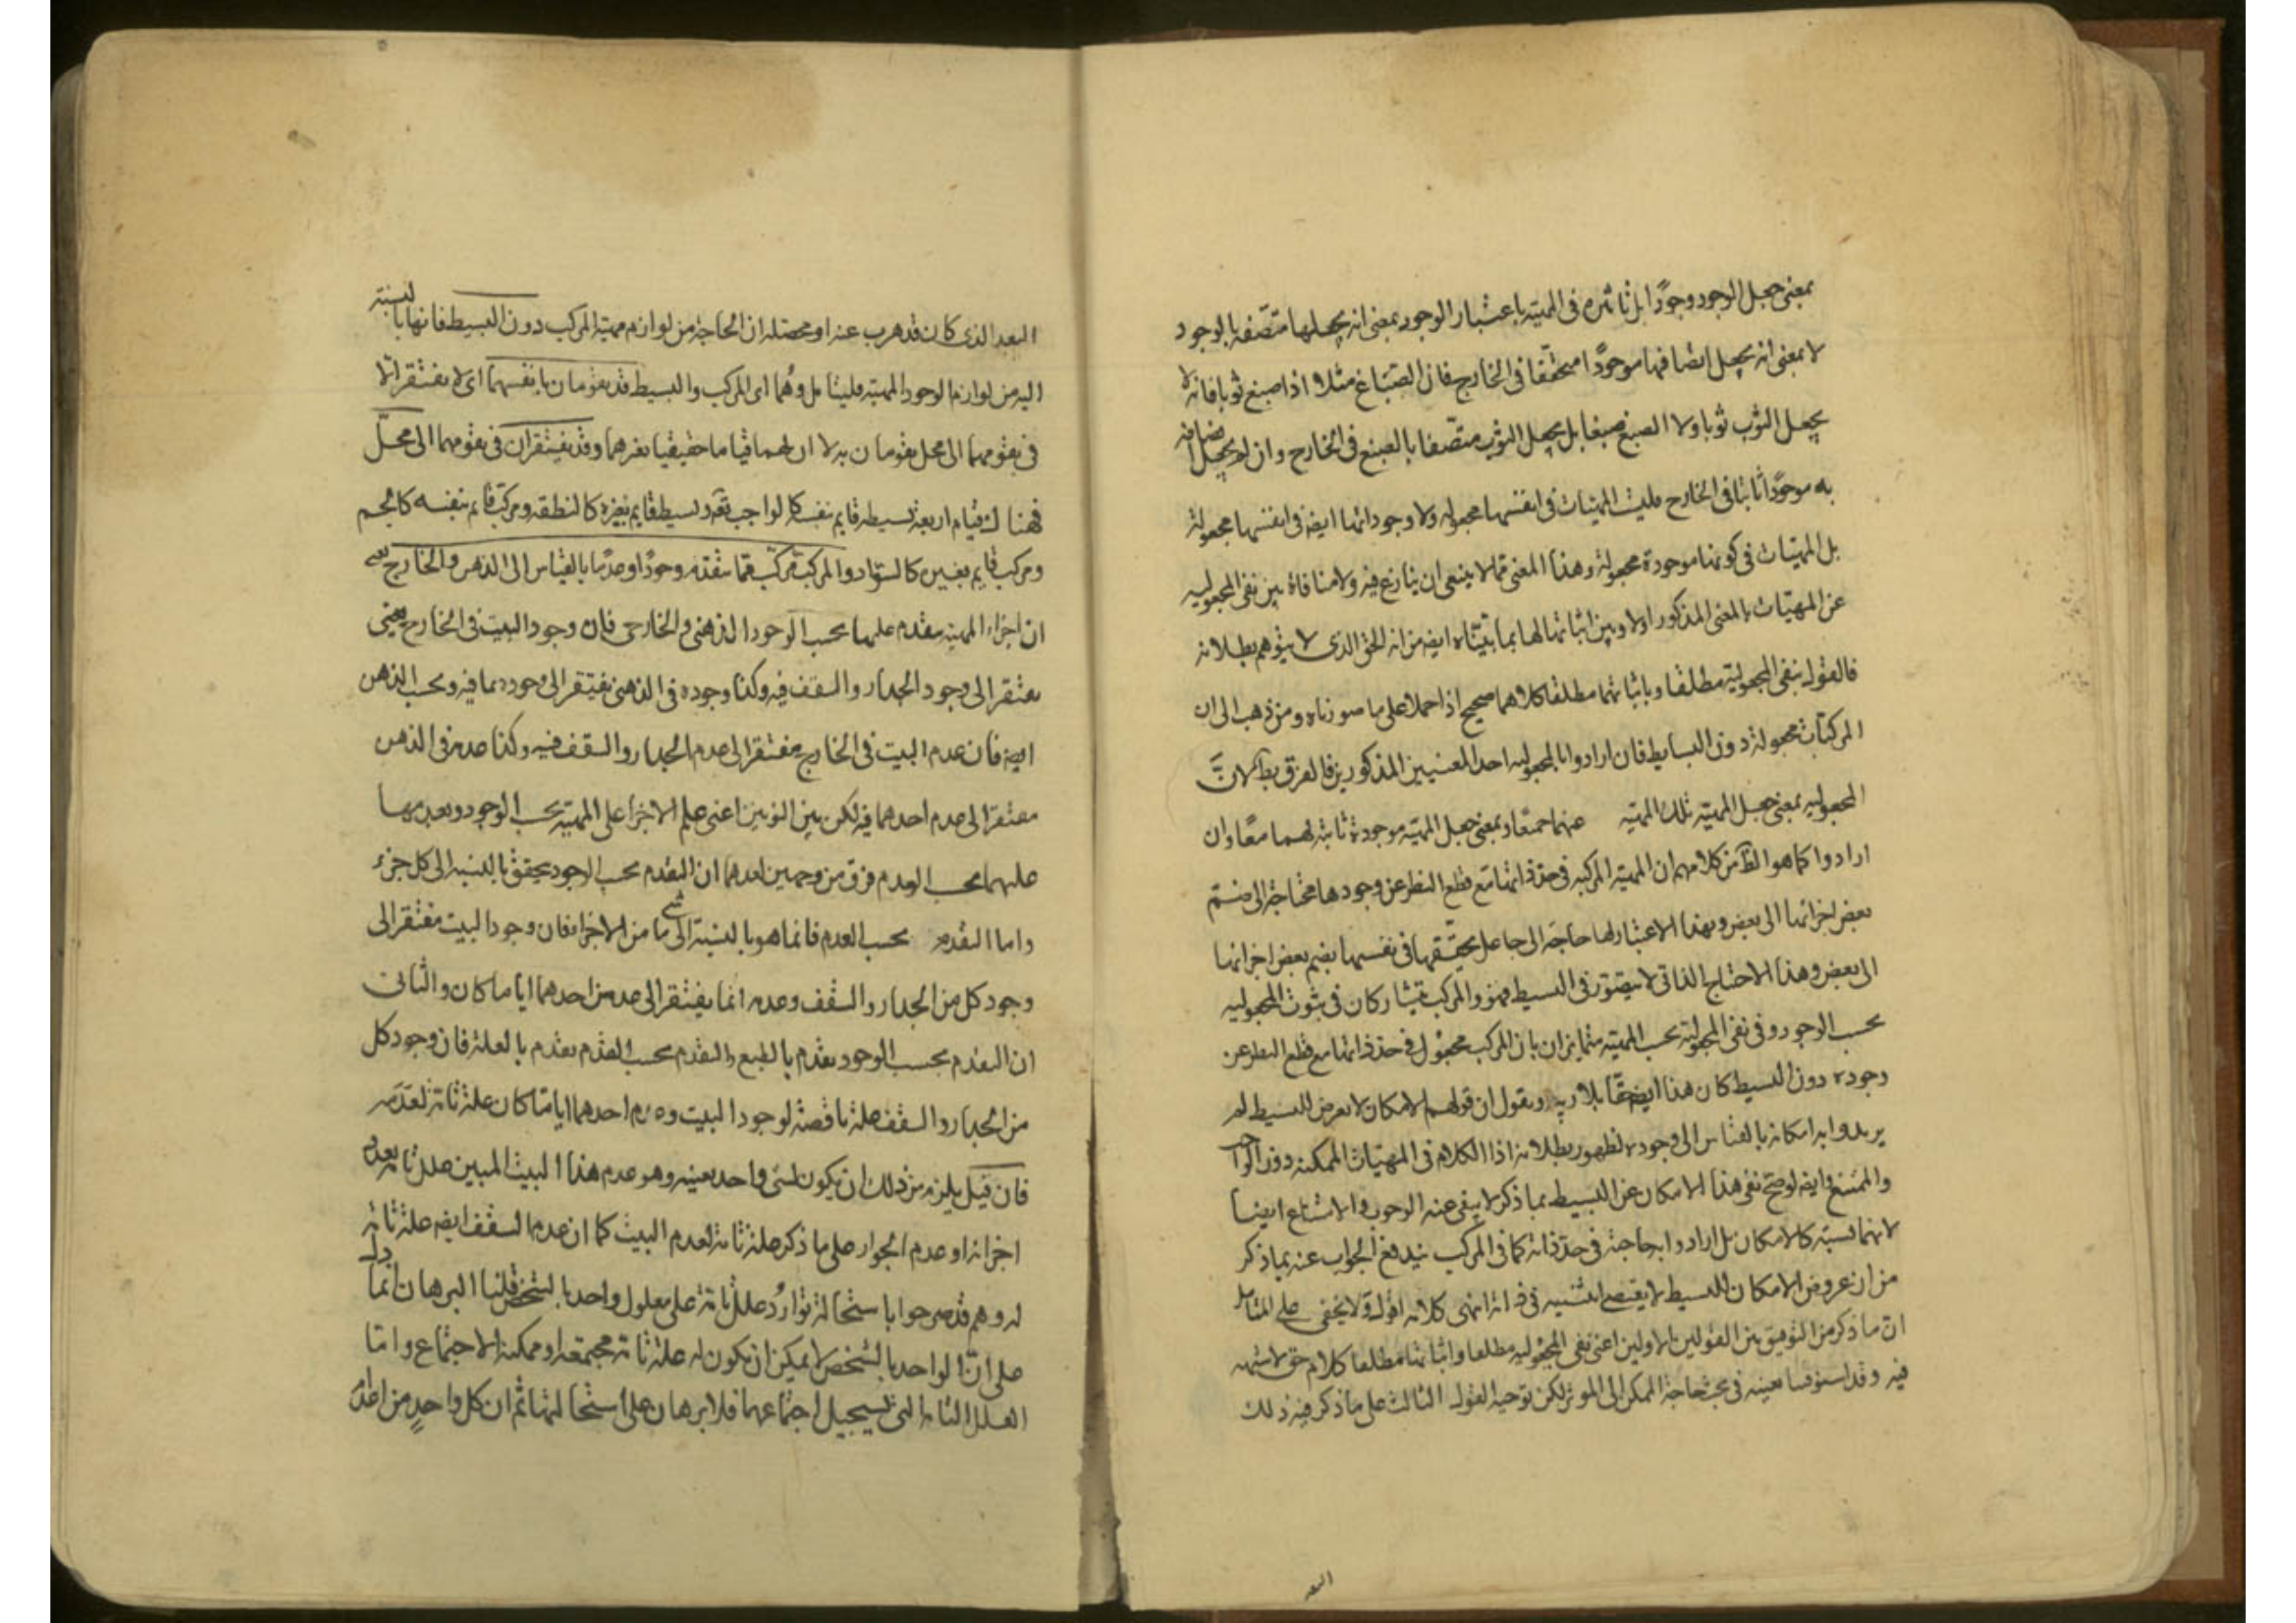 بمعنى جعل الوجود وجودًا بل تاثيره في المهية باعتبار الوجود بمعنى انه يجعلها متصفة بالوجود
لا بمعنى انه يجعل اتصافها موجودًا متحققا في الخارج فان الصباغ مثلا اذا صبغ ثوبا فانه لا
يجعل الثوب ثوبا ولا الصبغ صبغا بل يجعل الثوب متصفا بالصبغ في الخارج وان لم يجعل اتصافه
به موجودًا ثابتا في الخارج فليست المهيات في انفسها مجعوله ولا وجوداتها ايضه في انفسها مجعولة
بل المهيات في كونها موجودة مجعولة وهذا المعنى مما لا ينبغى ان ينازع فيه ولا منافاة بين نفى المجعوليه
عن المهيات بالمعنى المذكور اولا وبين اثباتها لها بما بيناه ايضه من انه الحق الذى لا يتوهم بطلانه
فالقول بنفى المجعولية مطلقا وباثباتها مطلقا كلاهما صحيح اذا حملا على ما صورناه ومن ذهب الى ان
المركبات مجعولة دون البسايط فان ارادوا بالمجعوليه احد المعنيين المذكورين فالفرق بط لانَّ
المجعوليه بمعنى جعل المهيته تلك المهيته عنهما جمعًا وبمعنى جعل المهيه موجودة ثابتة لهما معًا وان
ارادوا كما هو الظ من كلامهم ان المهيته المركبه في حد ذاتها مع قطع النظر عن وجودها محتاجة الى ضم
بعض اجزائها الى بعض وبهذا الاعتبار لها حاجة الى جاعل يحققها في نفسها بضم بعض اجزائها
الى بعض وهذا الاحتياج الذاتى لا يتصور في البسيط فهو والمركب يتشاركان في ثبوت المجعوليه
بحسب الوجود وفي نفى المجعولية بحسب المهيته متمايزان بان المركب مجعول في حد ذاتها مع قطع النظر عن
وجوده دون البسيط كان هذا ايضه حقا بلا ريبه ويقول ان قولهم الامكان لا يعرض للبسيط لم
يريدوا به امكانه بالقياس الى وجوده لظهور بطلانه اذا الكلام في المهيات الممكنه دون الواجب
والممتنع وايضه لو صح نفى هذا الامكان عن البسيط بما ذكر لا يبقى عنه الوجوب والامتناع ايضا
لانهما نسبته كالامكان بل ارادوا به حاجته في حد ذاته كما في المركب يندفع الجواب عنه بما ذكر
من ان عروض الامكان للبسيط لا يقتضى اثنينيه في ذاته انتهى كلامه اقول ولا يخفى على المتامل
ان ما ذكر من التوفيق بين القولين الاولين اعنى نفى المجعوليه مطلقا واثباتها مطلقا كلام حق لا شبهه
فيه وقد استوفينا بعينه في بحث حاجة الممكن الى الموثر لكن توجيه القول الثالث على ما ذكر فيه ذلك
البعد
البعد الذى كان قد هرب عنه او محصله ان الحاجة من لوازم مهية المركب دون البسيط فانها بالنسبة
اليه من لوازم الوجود المهيته فليتامل وهما اى المركب والبسيط قد يقومان بانفسهما اى لا يفتقران
في تقومهما الى محل يقومان به لا ان لهما قياما حقيقيا بغيرهما وقد يفتقران في تقومهما الى محلّ
فهناك اقسام اربعة بسيطه قايم بنفسه كالواجب تعه وبسيط قايم بغيره كالنطقه ومركب قايم بنفسه كالجسم
ومركب قايم بغيره كالسواد والمركب مركب مما يتقدمه وجودًا وعدمًا بالقياس الى الذهن والخارج يعنى
ان اجزاء المهيته يتقدم عليها بحسب الوجود الذهنى والخارجى فان وجود البيت في الخارج يعنى
يفتقر الى وجود الجدار والسقف فيه وكذا وجوده في الذهن يفتقر الى وجودهما فيه وبحسب الذهن
ايضه فان عدم البيت في الخارج مفتقر الى عدم الجدار والسقف فيه وكذا عدمه في الذهن
مفتقر الى عدم احدهما فيه لكن بين التوبين اعنى علم الاجزا على المهيته بحسب الوجود وبعدمها
عليهما بحسب العدم فرق من وجهين احدهما ان التقدم بحسب الوجود يتحقق بالنسبة الى كل جزء
واما التقدم بحسب العدم فانما هو بالنسبة الى شى ما من الاجزا فان وجود البيت مفتقر الى
وجود كل من الجدار والسقف وعدمه انما يفتقر الى عدم من احدهما ايا ما كان والثانى
ان التقدم بحسب الوجود تقدم بالطبع والتقدم بحسب العدم تقدم بالعلة فان وجود كل
من الجدار والسقف علة ناقصة لوجود البيت وعدم احدهما اياما كان علة تامة لعدمه
فان قيل يلزم من ذلك ان يكون لشى واحد بعينه وهو عدم هذا البيت المبين علل تامة بعدد
اجزائه او عدم الجدار على ما ذكر علة تامة لعدم البيت كما ان عدم السقف ايضه علة تامة
له وهم قد صرحوا باستحالة توارد علل تامة على معلول واحد بالشخص قلنا البرهان انما دل
على ان الواحد بالشخص لا يمكن ان يكون له علة تامة مجتمعة او ممكنة الاجتماع واما
العلل التامة التى يستحيل اجتماعهما فلا برهان على استحالتها ثم ان كل واحدٍ من اعدام